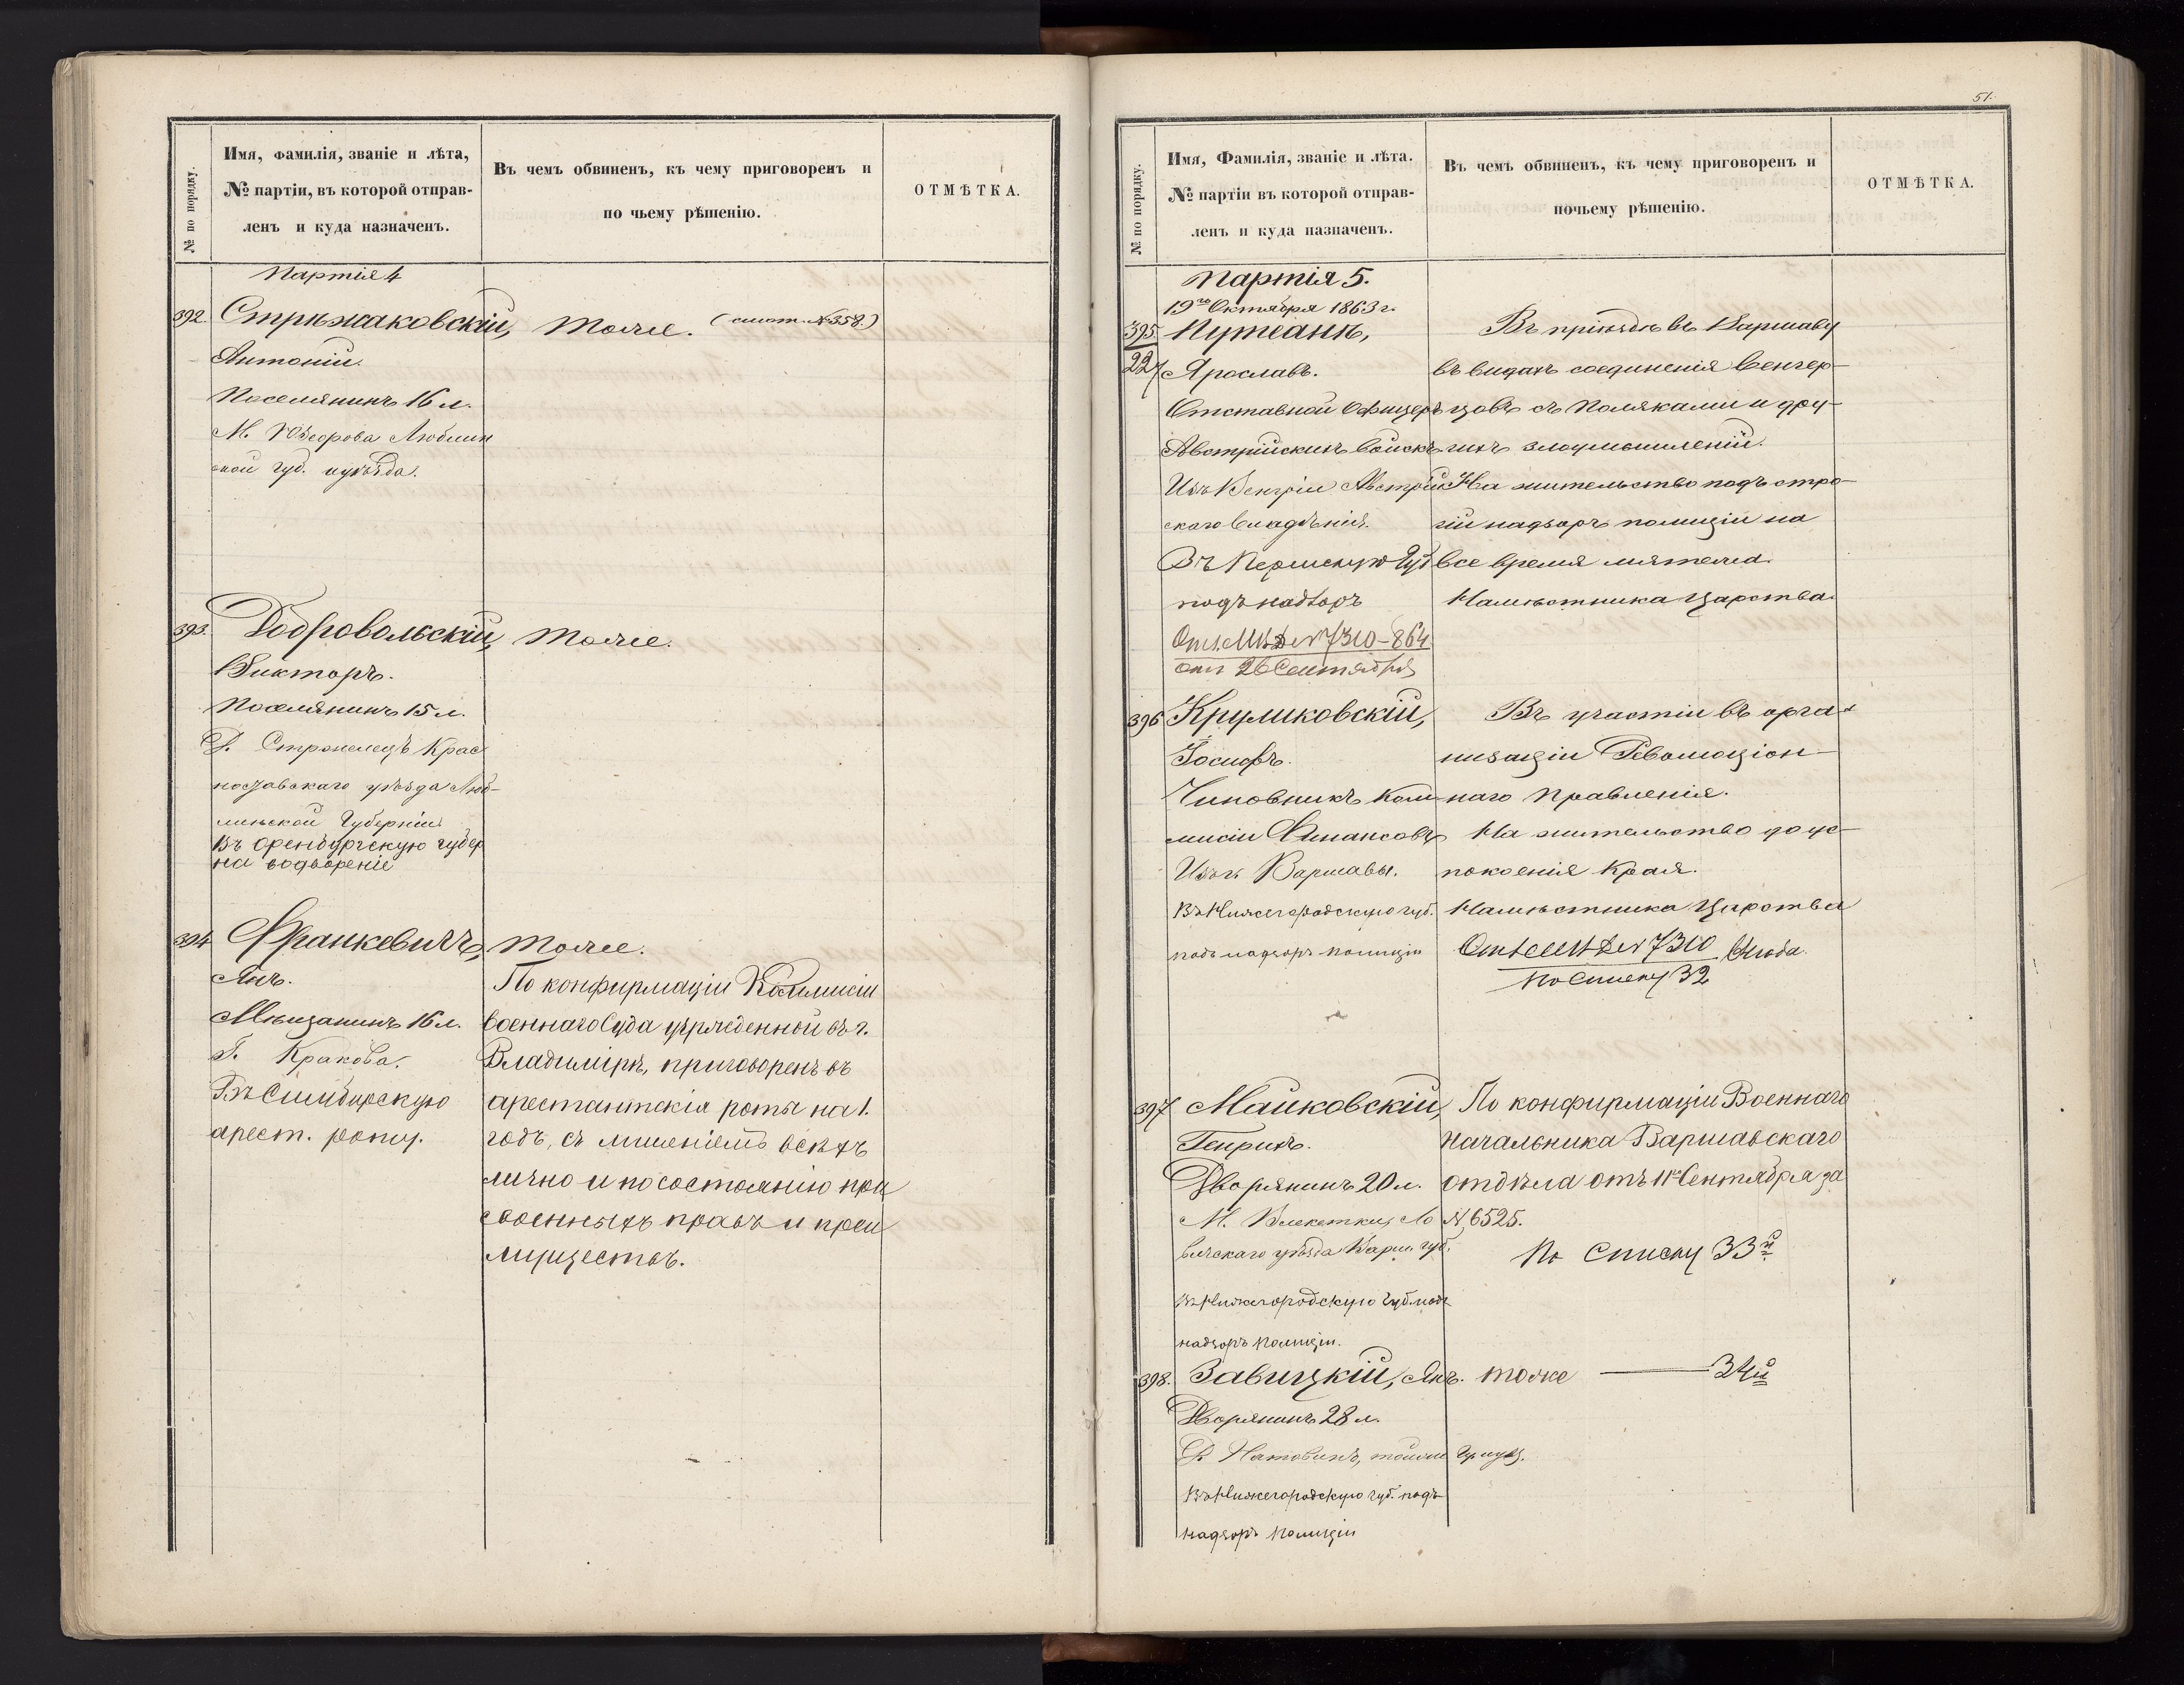 № по порядку.
Имя, фамилія, званіе и лѣта,
№ партіи, въ которой отправ-
ленъ и куда назначенъ.
Въ чемъ обвиненъ, къ чему приговоренъ и
по чьему рѣшенію.
ОТМѢТКА.
Партія 4
392. Стрыжаковскій, Тоже. (смот. №358.)
Антоній.
Поселянинъ 16 л.
М. Юзефова Люблин
ской губ. и уѣзда.
393. Добровольскій, Тоже.
Викторъ.
Поселянинъ 15 л.
Д. Стрженецъ Крас
ноставскаго уѣзда Люб-
линской Губерніи
Въ Оренбургскую губер
на водвореніе
394 Франкевичъ, Тоже.
Янъ.
Мѣщанинъ 16 л.
Г. Кракова.
Въ Симбирскую
арест. роту.
По конфирмаціи Коммисіи
военнаго Суда учрежденной въ г.
Владимірѣ, приговоренъ въ
арестантскія роты на 1.
годъ, съ лишеніемъ всѣхъ
лично и по состоянію при
своенныхъ правъ и преи
муществъ.
51.
№ по порядку.
Имя, Фамилія, званіе и лѣта.
№ партіи въ которой отправ-
ленъ и куда назначенъ.
Въ чемъ обвиненъ, къ чему приговоренъ и
почьему рѣшенію.
ОТМѢТКА.
Партія 5.
19го Октября 1863 г.
395 Путеани,
227 Ярославъ.
Отставной Офицеръ
Австрійскихъ войскъ
Изъ Венгріи Австрій
скаго владѣнія.
Въ Пермскую Губ
подъ надзоръ
№ 7310-864
отъ 26 Сентября
Въ пріѣздѣ въ Варшаву
въ видахъ соединенія Венгер-
цовъ съ Поляками и дру-
гихъ злоумышленій.
На жительство подъ стро-
гій надзоръ полиціи на
все время мятежа.
Намѣстника Царства.
396 Круликовскій,
Іосифъ.
Чиновникъ Ком
мисіи Финансовъ
Изъ г. Варшавы.
Въ Нижегородскую губ.
подъ надзоръ полиціи
Въ участіи въ орга-
низаціи Революціон-
наго Правленія.
На жительство до ус-
покоенія Края.
Намѣстника Царства
№ 7310
По Списку 32
397 Майковскій,
Генрихъ.
Дворянинъ 20 л.
М. Ло
вичскаго уѣзда Варш. губ.
Въ Нижегородскую губ. подъ
надзоръ полиціи.
По конфирмаціи Военнаго
Начальника Варшавскаго
отдѣла отъ 11го Сентября за
№ 6525.
По Списку 33й
398. Завицкій, Янъ. тоже — 34й
Дворянинъ 28 л.
Въ Нижегородскую губ. подъ
надзоръ полиціи